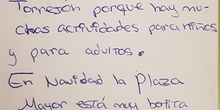 Torrejón porque hay mu-
chas actividades para niños
y para adultos.
En Navidad la Plaza
Mayor está muy bonita